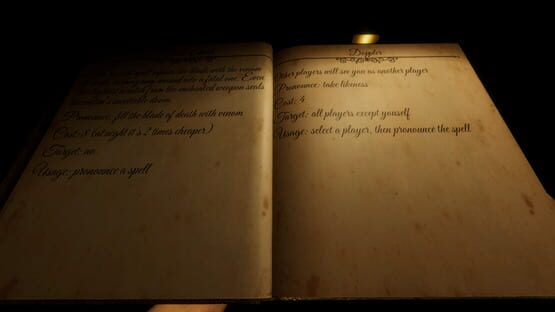 the blade with the venom
way wound into a fatal one. Even
from the enchanted weapon seals
inevitable doom.
Pronounce: fill the blade of death with venom
Cost: 8 (at night it's 2 times cheaper)
Target: no
Usage: pronounce a spell
Doppler
Other players will see you as another player
Pronounce: take likeness
Cost: 4
Target: all players except youself
Usage: select a player, then pronounce the spell